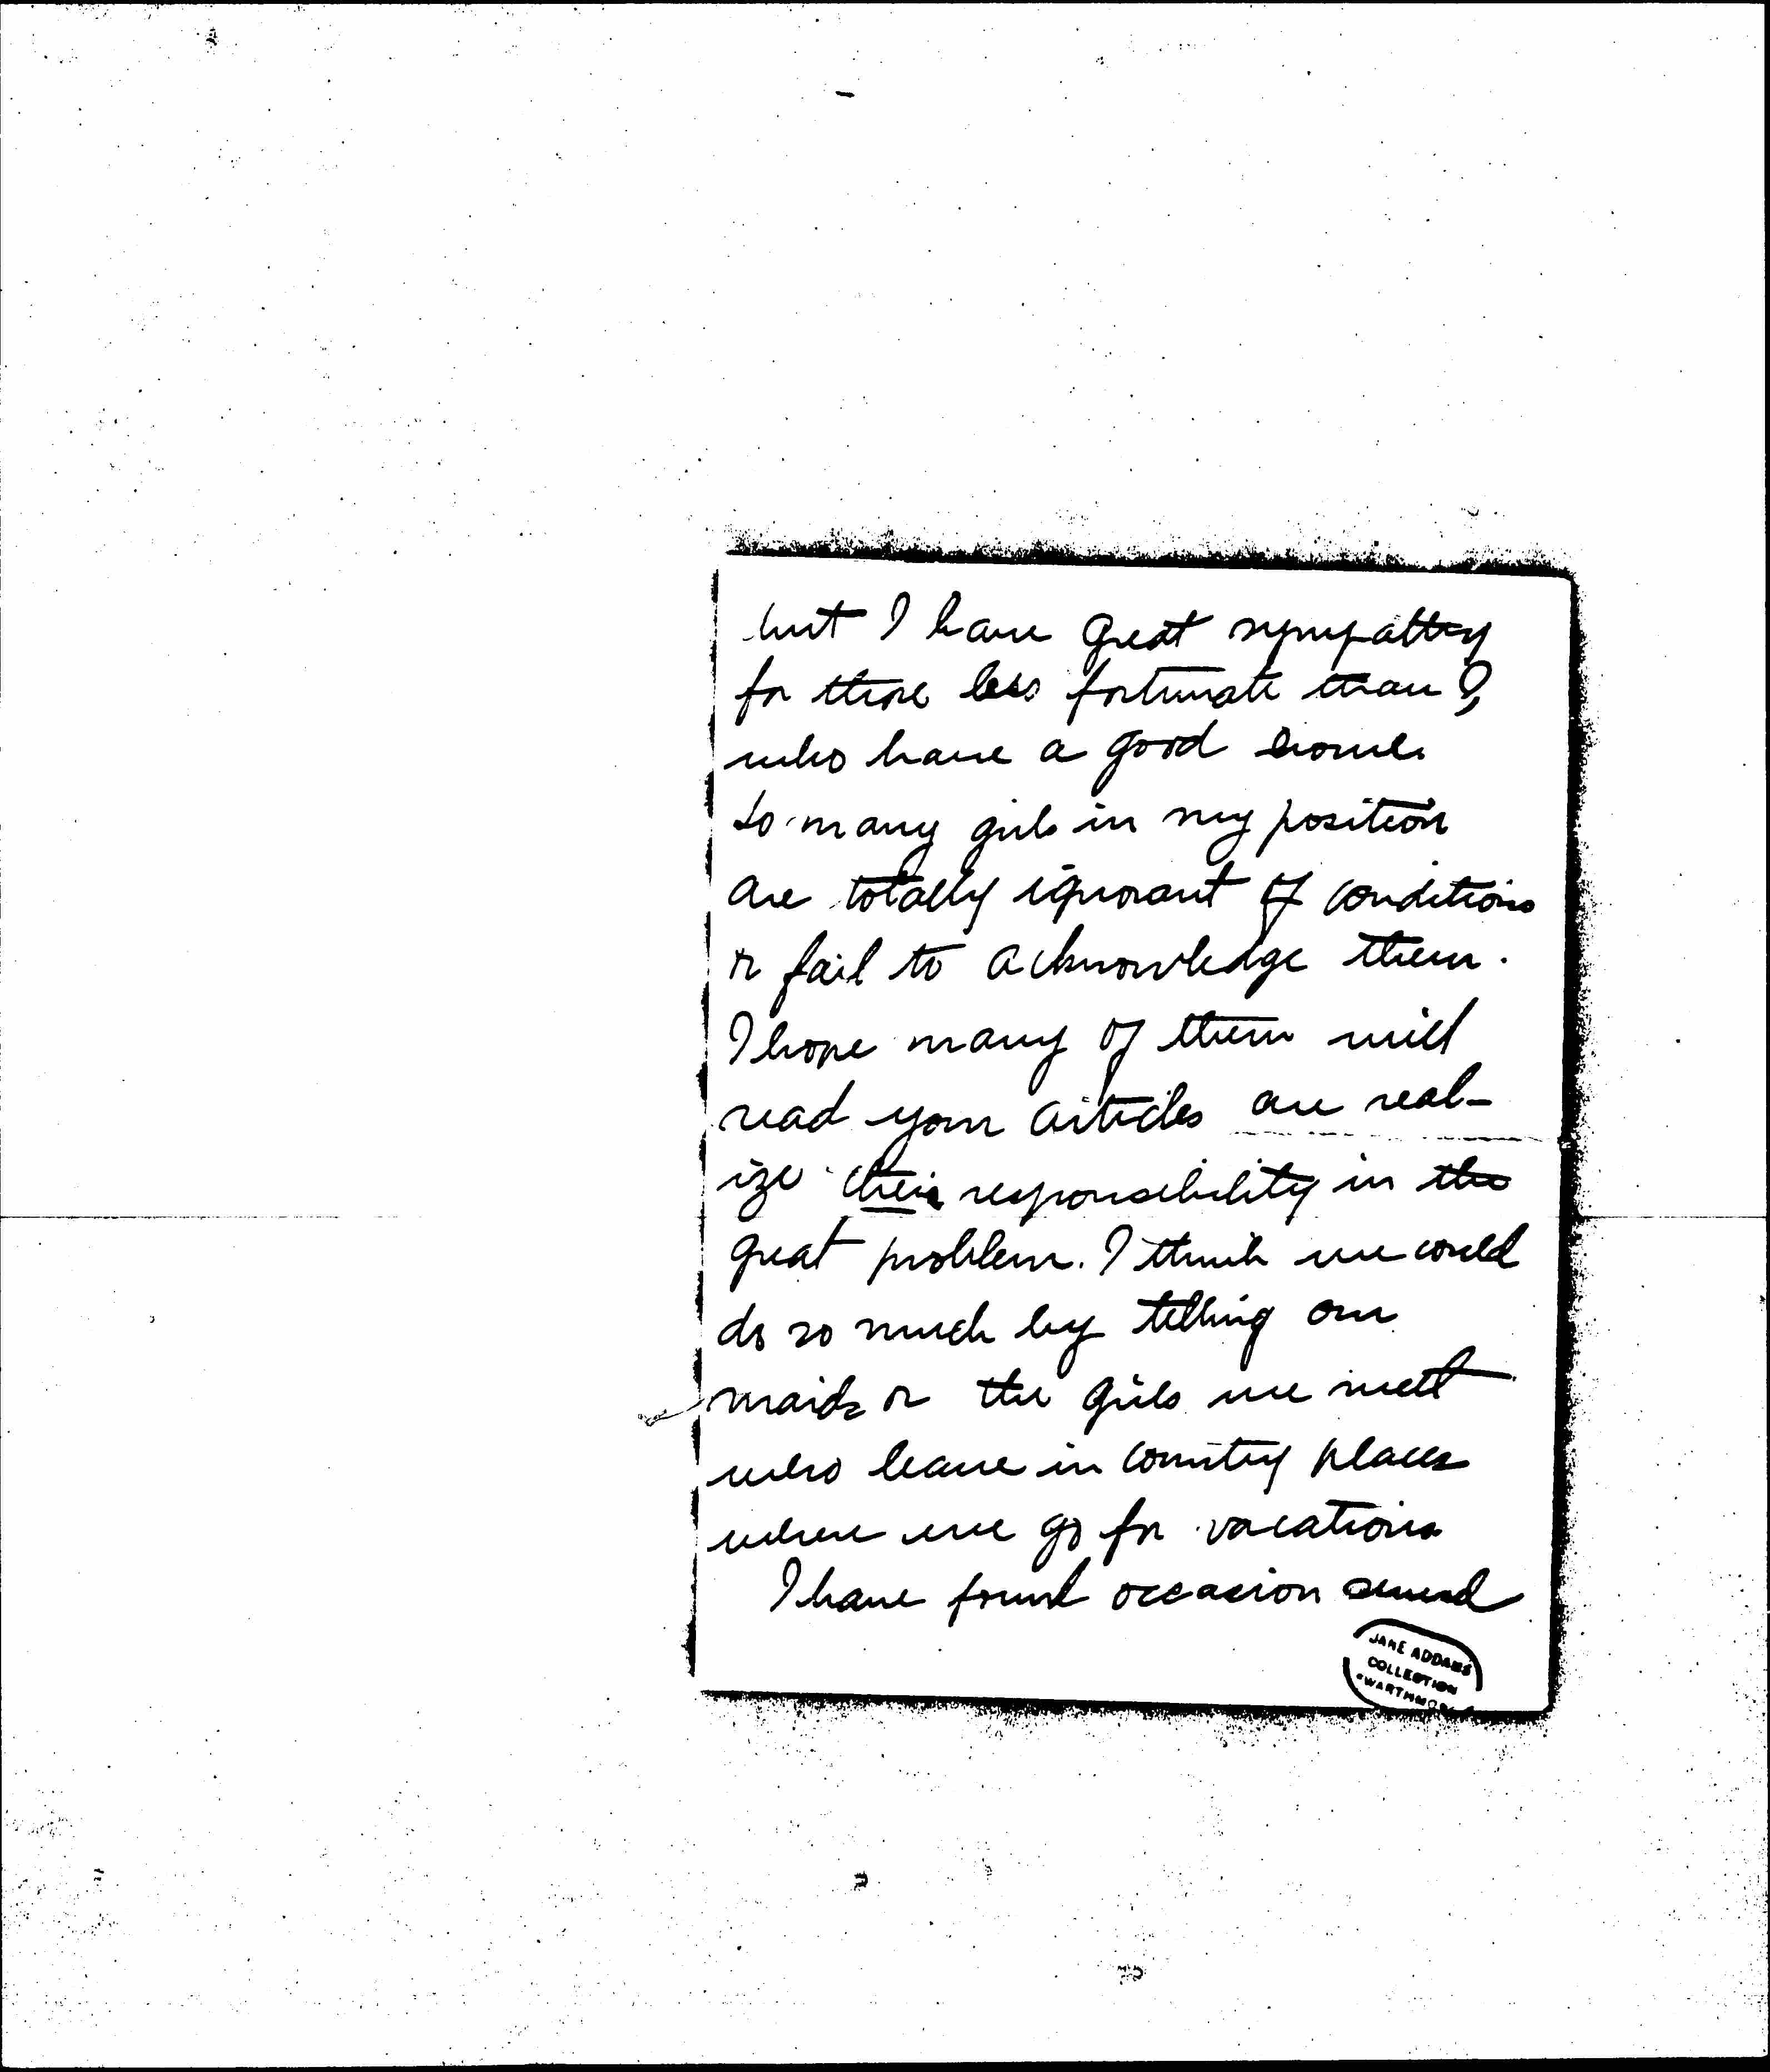 but I have great sympathy
for those less fortunate than I,
who have a good home.
So many girls in my position
are totally ignorant of conditions
or fail to acknowledge them.
I hope many of them will
read your articles are real-
ize their responsibility in the
great problem. I think we could
do so much by telling our
maids or the girls we meet
who leave in country places
where we go for vacations
I have found occasion several
JANE ADDAMS
COLLECTION
SWARTHMORE